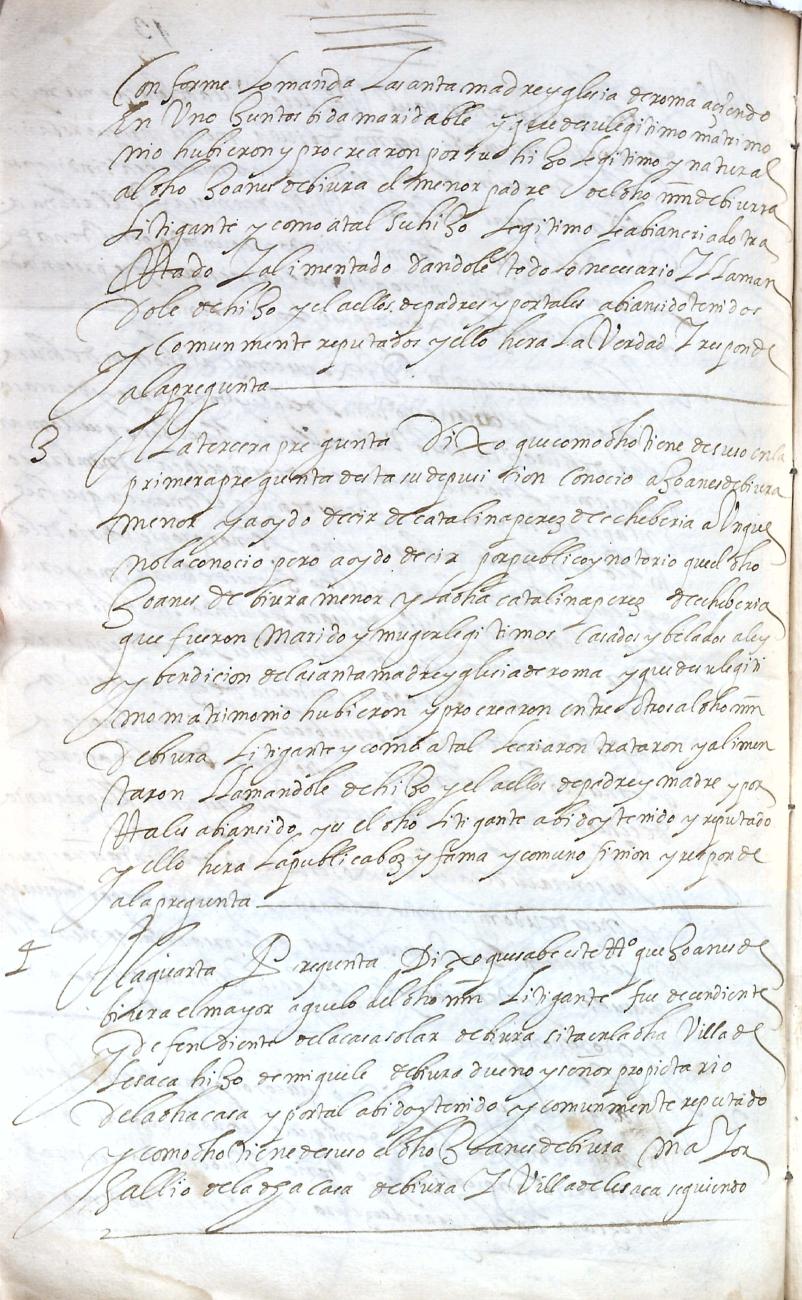 Conforme lo manda la santa madre yglesia de roma açiendo
en Uno Juntos bida maridable y que de su legitimo matrimo
nio hubieron y procrearon por su hijo legitimo y natural
al dho Joanes de biura el menor padre del dho mm de biurra
litigante y como atal su hijo legitimo le abian criado tra
ttado Y alimentado dandole todo lo necesario Y llaman
dole de hijo y el a ellos de padres y por tales abian sido tenidos
y comunmente reputados y ello hera la Verdad Y responde
a la pregunta
3 A la tercera pregunta Dixo que como dho tiene de suso en la
primera pregunta desta su depusicion conocio a Joanes de biura
menor y a oydo decir de catalina perez de echeberia a Unque
no la conocio pero a oydo decir por publico y notorio que el dho
Joanes de biura menor y la dha catalina perez de echeberia
que fueron marido y muger legitimos casados y belados a ley
y bendicion de la santa madre yglesia de roma y que de su legiti
mo matrimonio hubieron y procrearon entre otros al dho mm
De biura litigante y como atal le criaron trataron y alimen
taron llamandole de hijo y el a ellos de padre y madre y por
ttales abian sido y es el dho litigante abido y tenido y reputado
y ello hera la publica boz y fama y comun opinion y responde
a la pregunta
4 A la quarta Pregunta Dixo que sabe este tto que Joanes de
biura el mayor aguelo del dho mm litigante fue decendiente
y defendiente de la casa solar de biura sita en la dha Villa de
Lesaca hijo de miguel de biura dueno y señor propietario
de la dha casa y por tal abido y tenido y comunmente reputado
y como dho tiene de suso el dho Joanes de biura maYor
sallio de la dha casa de biura Y Villa de lesaca seguiendo